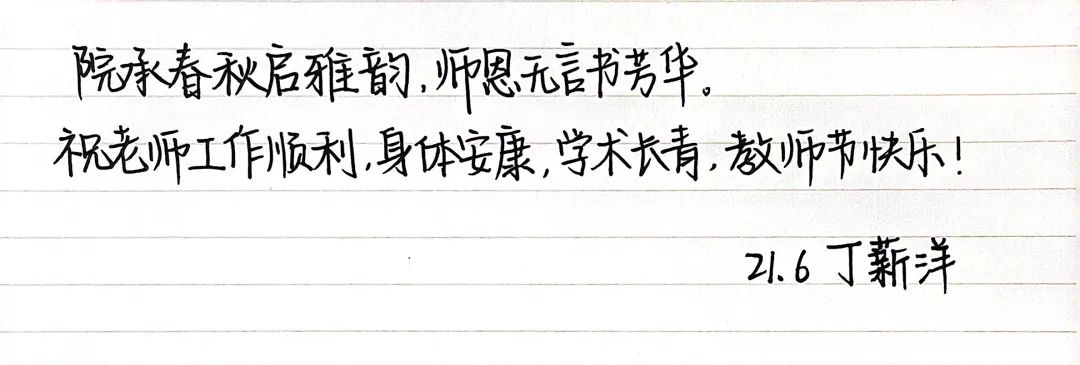 院承春秋启雅韵,师恩无言书芳华。
祝老师工作顺利,身体安康,学术长青,教师节快乐!
21.6 丁薪洋